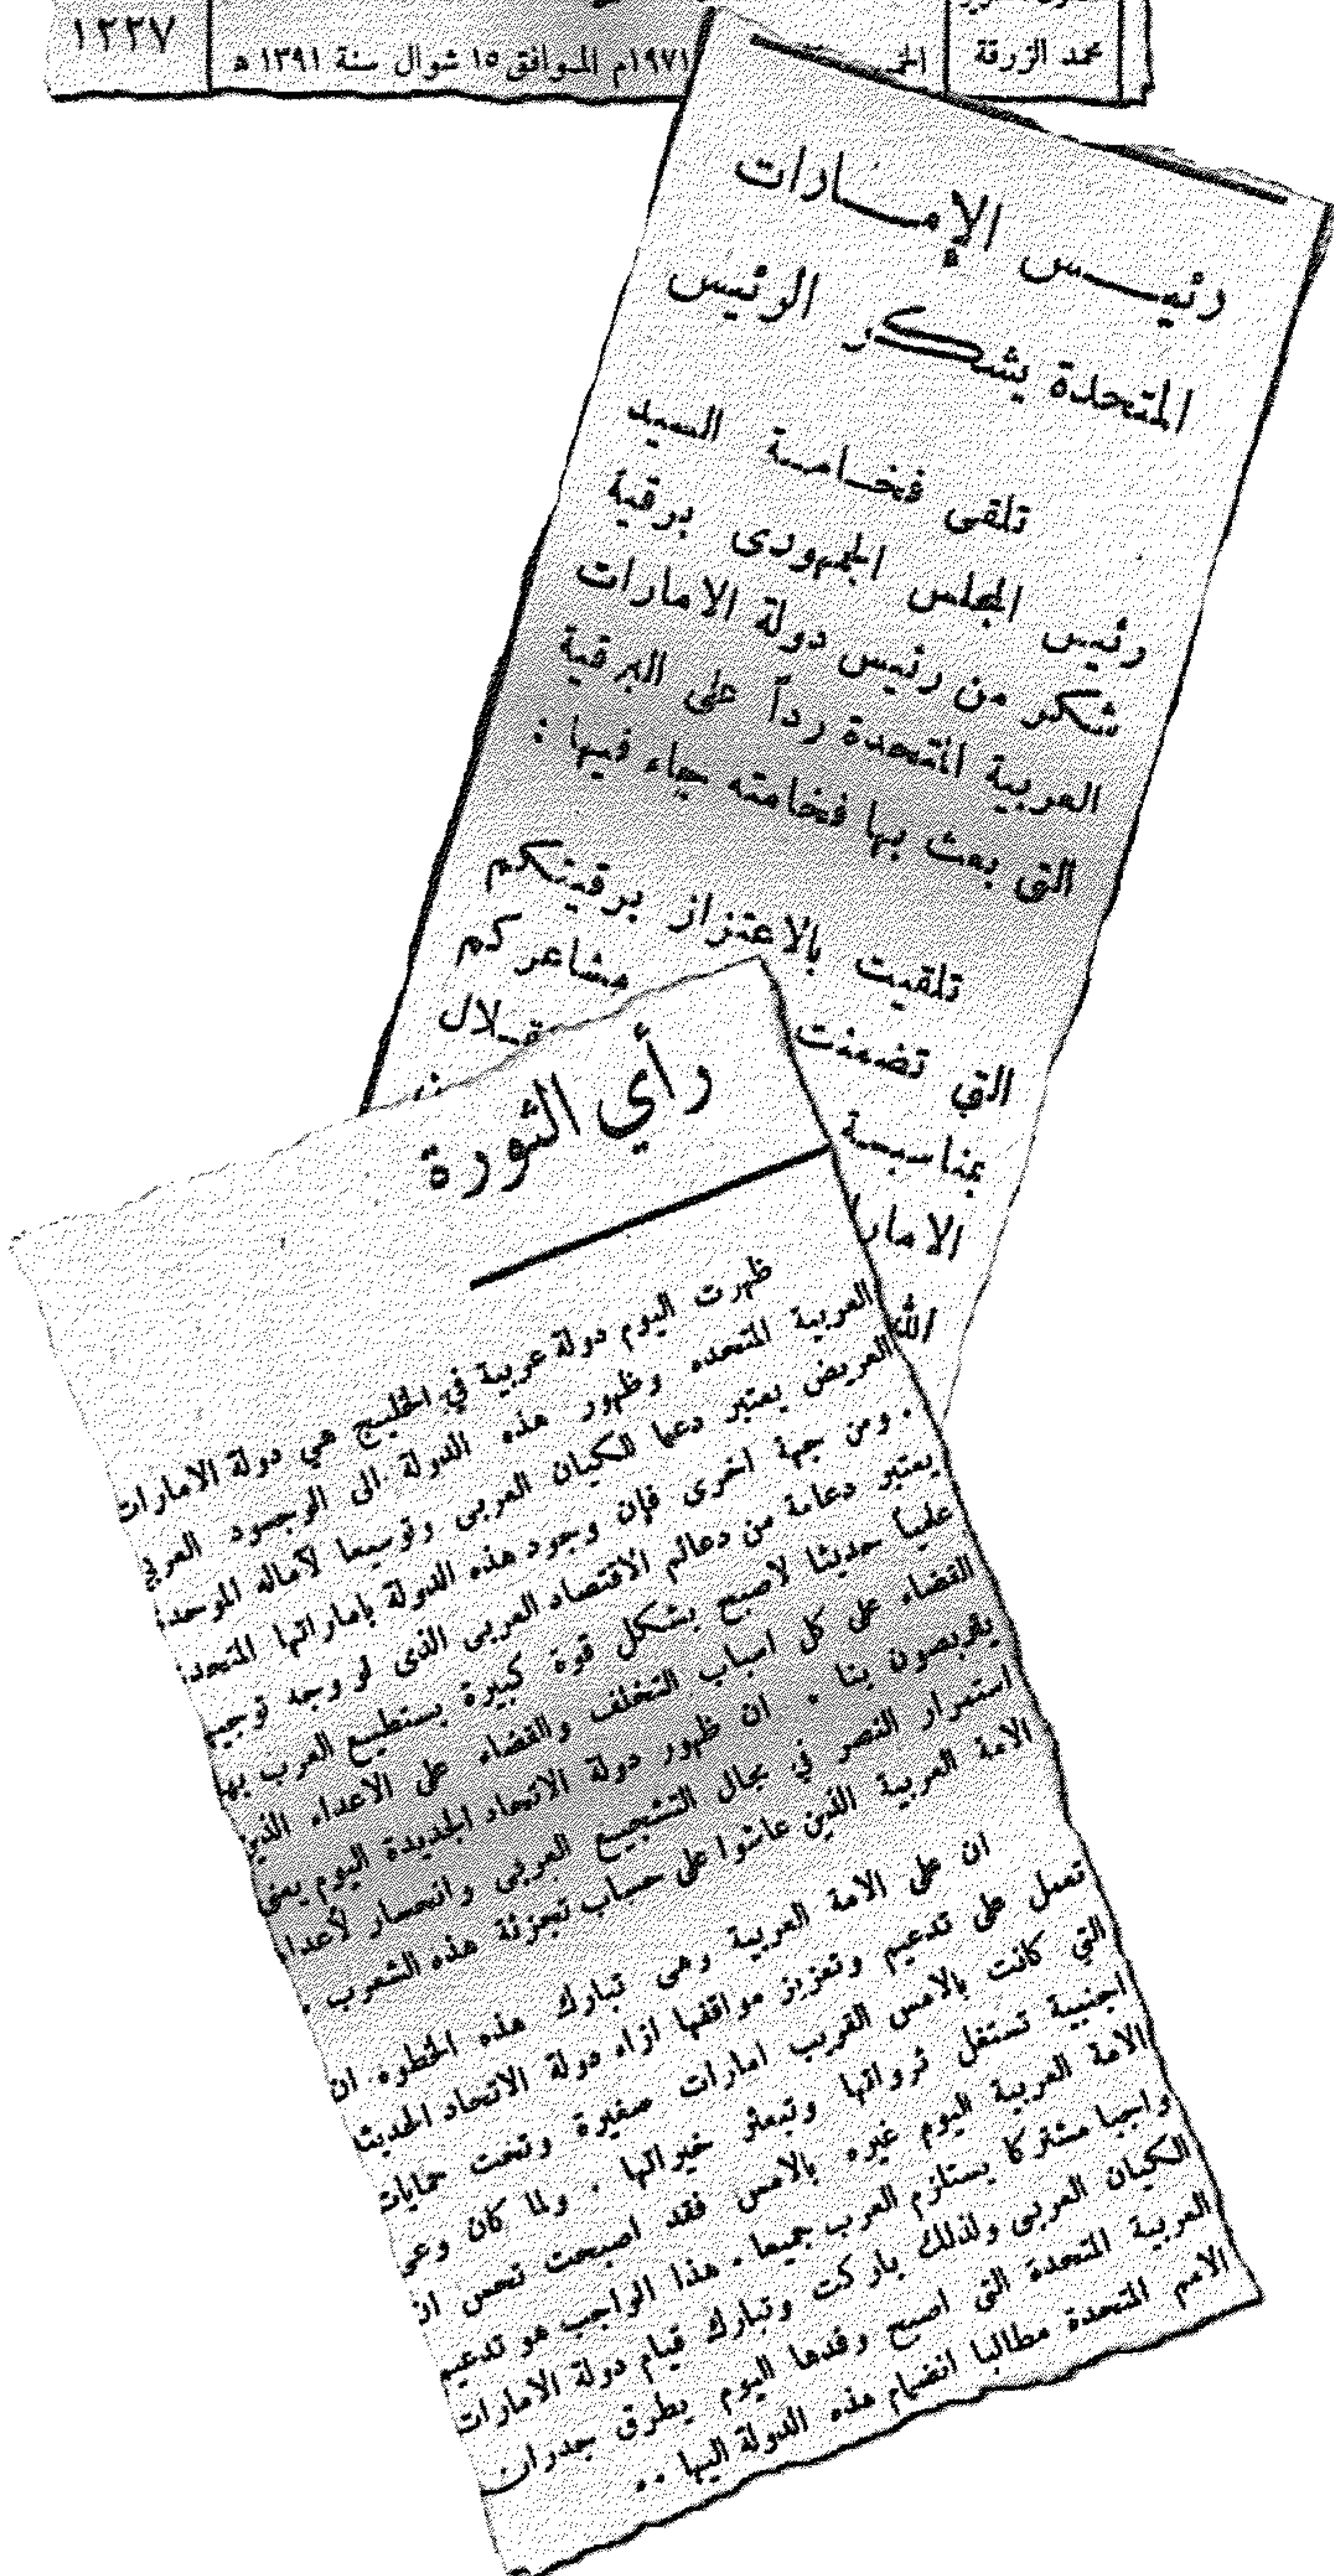 محمد الزرقة
١٩٧١م الموافق ١٥ شوال سنة ١٣٩١ ه
١٢٣٧
رئيس الإمارات
المتحدة يشكر الرئيس
تلقى فخامة السيد
رئيس المجلس الجمهورى برقية
شكر من رئيس دولة الامارات
العربية المتحدة رداً على البرقية
التى بعث بها فخامته جاء فيها :
تلقيت بالاعتزاز برقيتكم
التي تضمنت مشاعركم
بمناسبة
الامار
الله
رأي الثورة
ظهرت اليوم دولة عربية في الخليج هي دولة الامارات
العربية المتحده وظهور هذه الدولة الى الوجود العربي
العريض يعتبر دعما للكيان العربى وتوسيعا لآماله الموحدة
. ومن جهة اخرى فإن وجود هذه الدولة بإماراتها المتحدة
يعتبر دعامة من دعائم الاقتصاد العربى الذى لو وجد توجيها
علمياً حديثا لاصبح بشكل قوة كبيرة يستطيع العرب بها
القضاء على كل اسباب التخلف والقضاء على الأعداء الذين
يتربصون بنا . ان ظهور دولة الاتحاد الجديدة اليوم يعنى
استمرار النصر في مجال التشجيع العربى وانحسار لأعداء
الامة العربية الذين عاشوا على حساب تجزئة هذه الشعوب .
ان على الامة العربية وهى تبارك هذه الخطوه ان
تعمل على تدعيم وتعزيز مواقفها ازاء دولة الاتحاد الحديثة
التي كانت بالامس القريب امارات صغيرة وتحت حمايات
اجنبية تستغل ثرواتها وتبعثر خيراتها . ولما كان وعي
الامة العربية اليوم غيره بالامس فقد اصبحت تحس ان
واجبا مشتركا يستلزم العرب جميعا . هذا الواجب هو تدعيم
الكيان العربى ولذلك باركت وتبارك قيام دولة الامارات
العربية المتحدة التى اصبح وفدها اليوم يطرق جدران
الامم المتحدة مطالبا انضمام هذه الدولة اليها . .